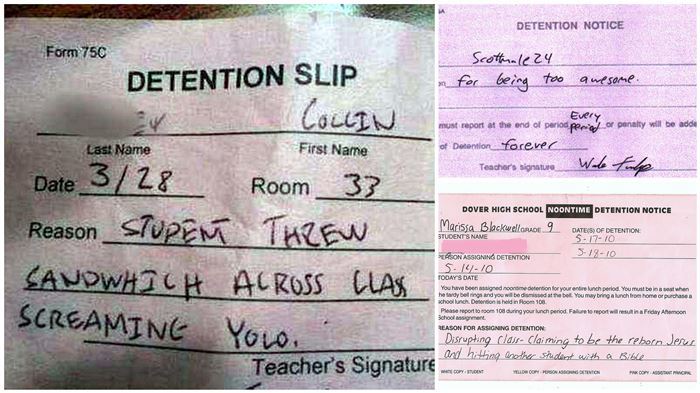 Form 75C
DETENTION SLIP
COLLIN
Last Name First Name
Date 3/28 Room 33
Reason STUDENT THREW
SANDWHICH ACROSS CLASS
SCREAMING YOLO.
Teacher's Signature
DETENTION NOTICE
Scottmale24
for being too awesome.
Every
must report at the end of period period or penalty will be adde
of Detention forever
Teacher's signature
DOVER HIGH SCHOOL NOONTIME DETENTION NOTICE
Marissa Blackwell GRADE 9 DATE(S) OF DETENTION:
STUDENT'S NAME 5-17-10
5-18-10
PERSON ASSIGNING DETENTION
5-14-10
TODAY'S DATE
You have been assigned noontime detention for your entire lunch period. You must be in a seat when
he tardy bell rings and you will be dismissed at the bell. You may bring a lunch from home or purchase a
school lunch. Detention is held in Room 108.
Please report to room 108 during your lunch period. Failure to report will result in a Friday Afternoon
School assignment.
REASON FOR ASSIGNING DETENTION:
Disrupting class- claiming to be the reborn Jesus
and hitting another student with a Bible
WHITE COPY - STUDENT YELLOW COPY - PERSON ASSIGNING DETENTION PINK COPY - ASSISTANT PRINCIPAL